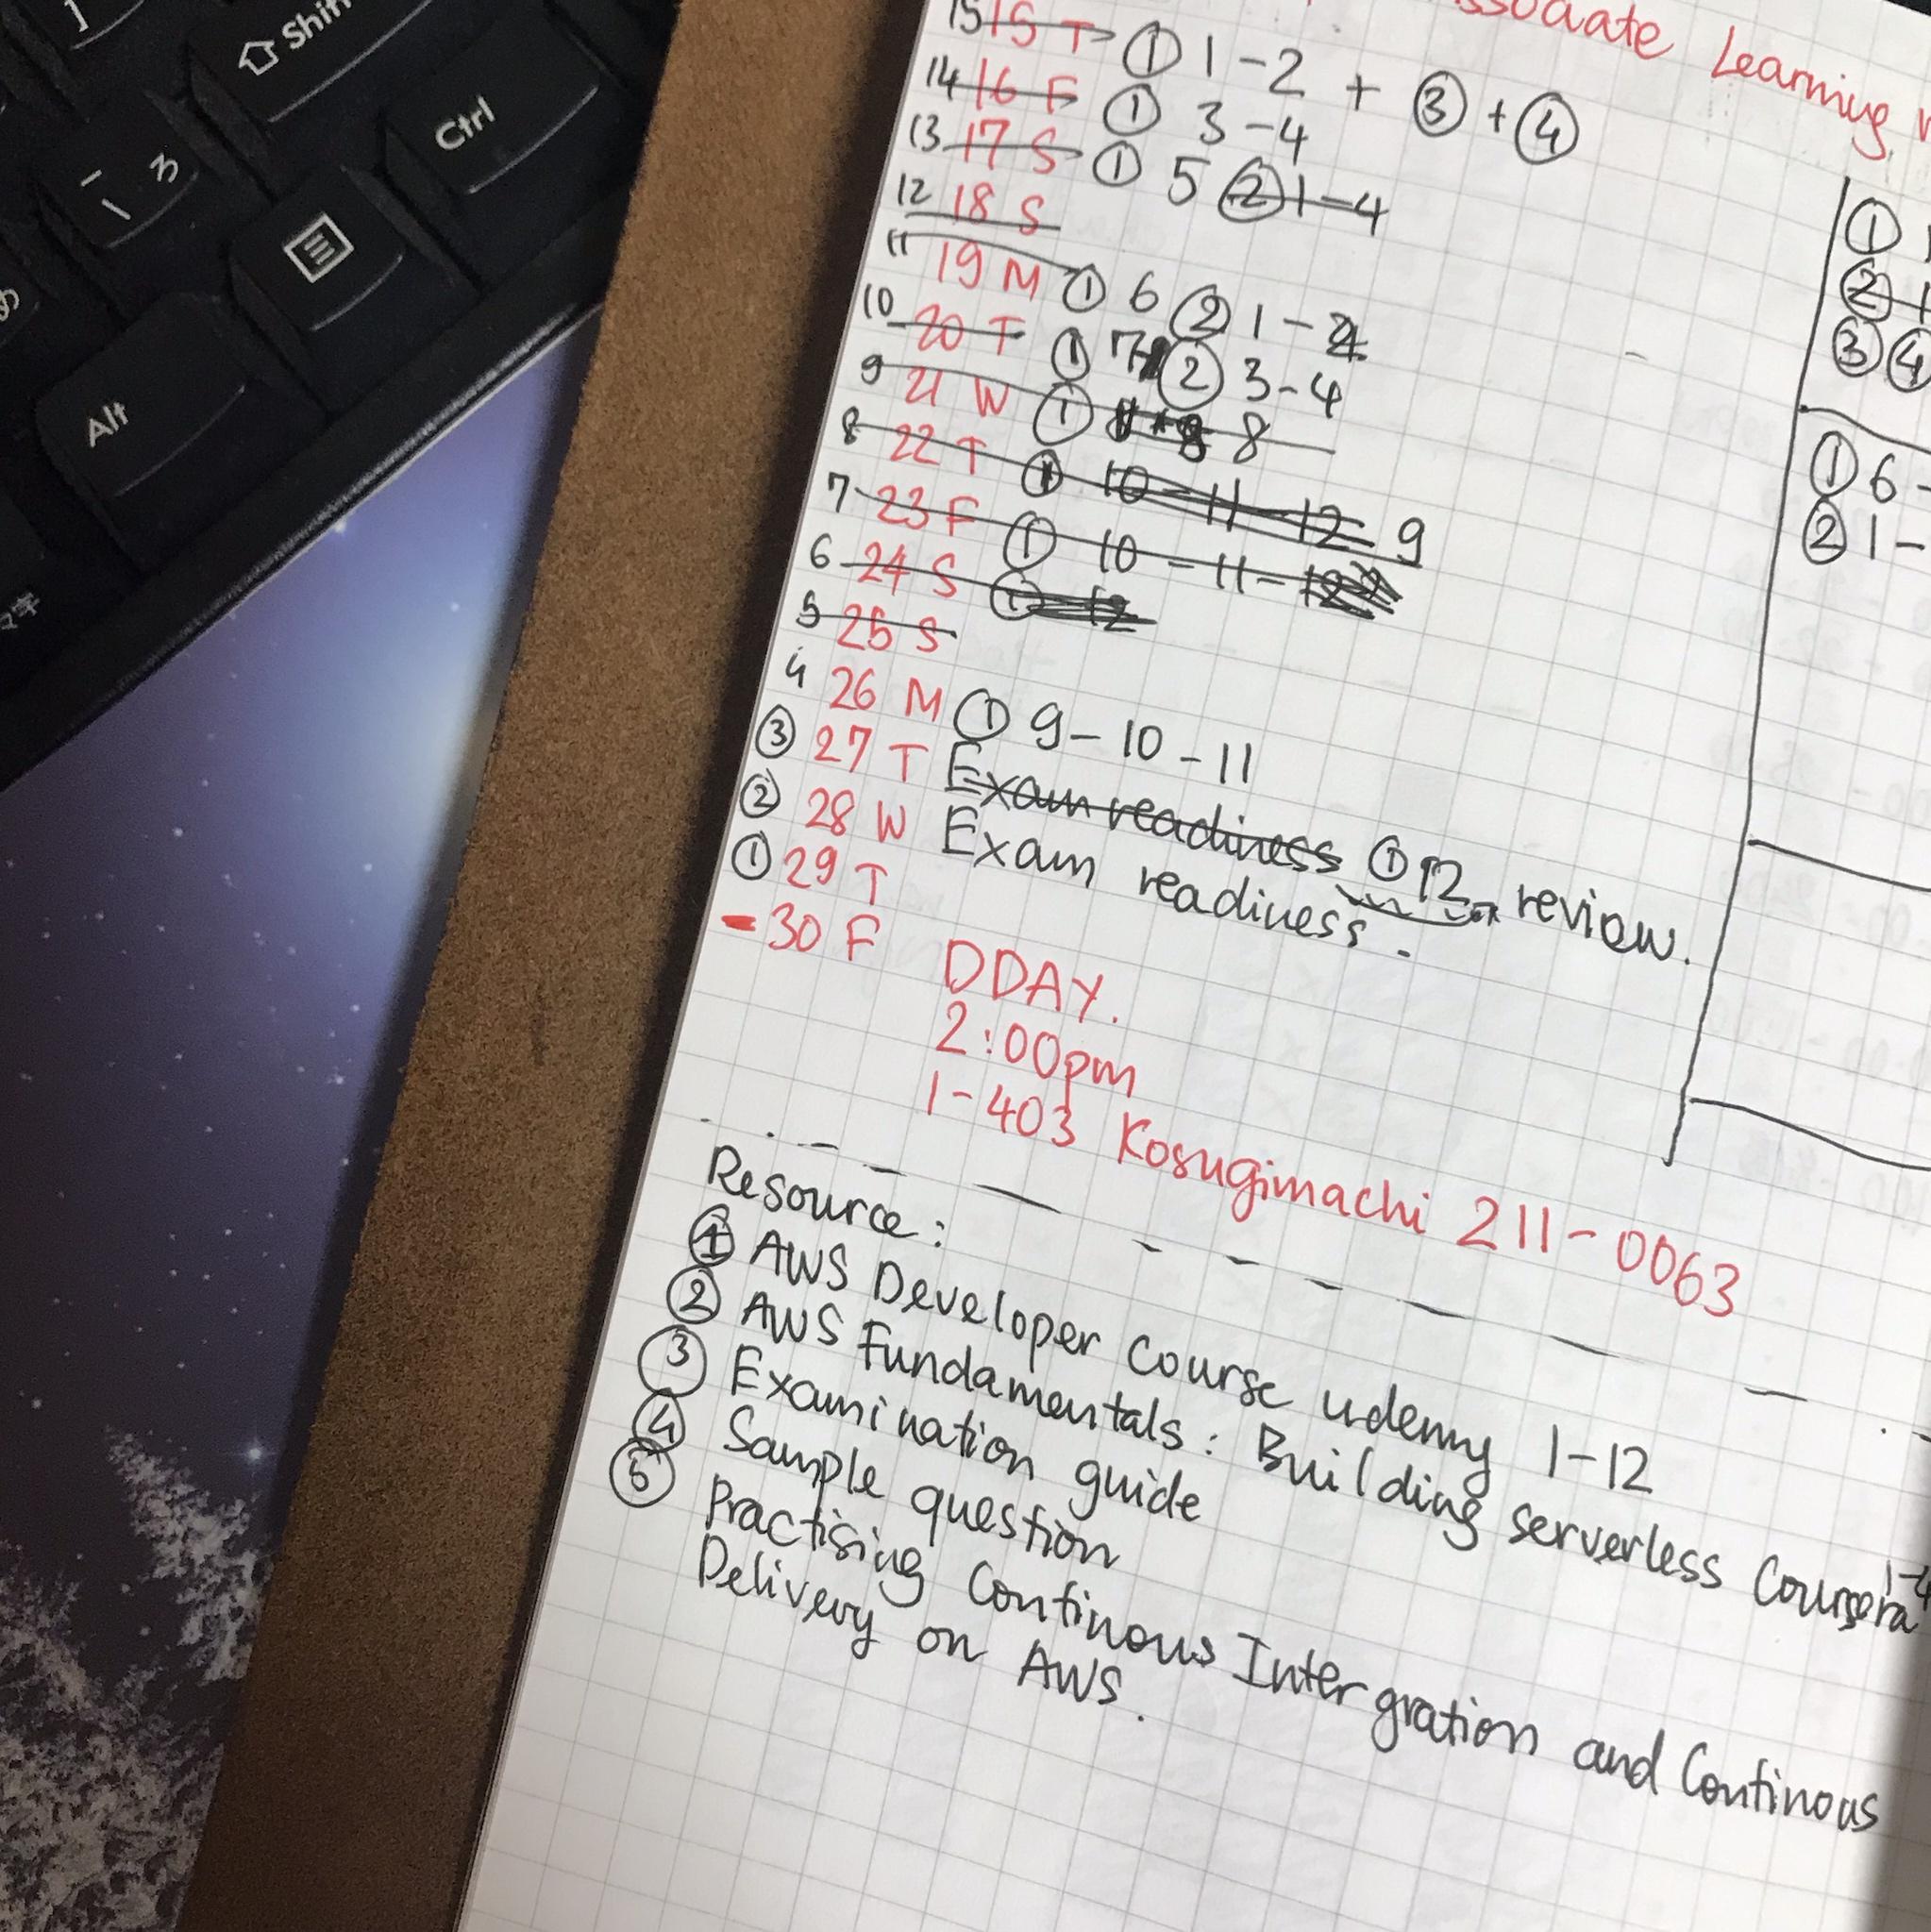 Shift
Ctrl
ろ
Alt
Learning
15 15 T ① 1-2 + ③ + ④
14 16 F ① 3-4
13 17 S ① 5 ② 1-4
12 18 S
11 19 M ① 6 ② 1-2
10 20 T ① 7 ② 3-4
9 21 W ① 8
8 22 T ① 10-11-12 9
7 23 F ① 10-11-12
6 24 S ① 12
5 25 S
4 26 M ① 9-10-11
③ 27 T Exam readiness ① 12 review.
② 28 W Exam readiness.
① 29 T
-30 F DDAY.
2:00pm
1-403 Kosugimachi 211-0063
Resource:
① AWS Developer Course udemy 1-12
② AWS Fundamentals: Building serverless Coursera 1-4
③ Examination guide
④ Sample question
⑤ Practising Continous Intergration and Continous
Delivery on AWS.
①
②
③ ④
① 6-
② 1-